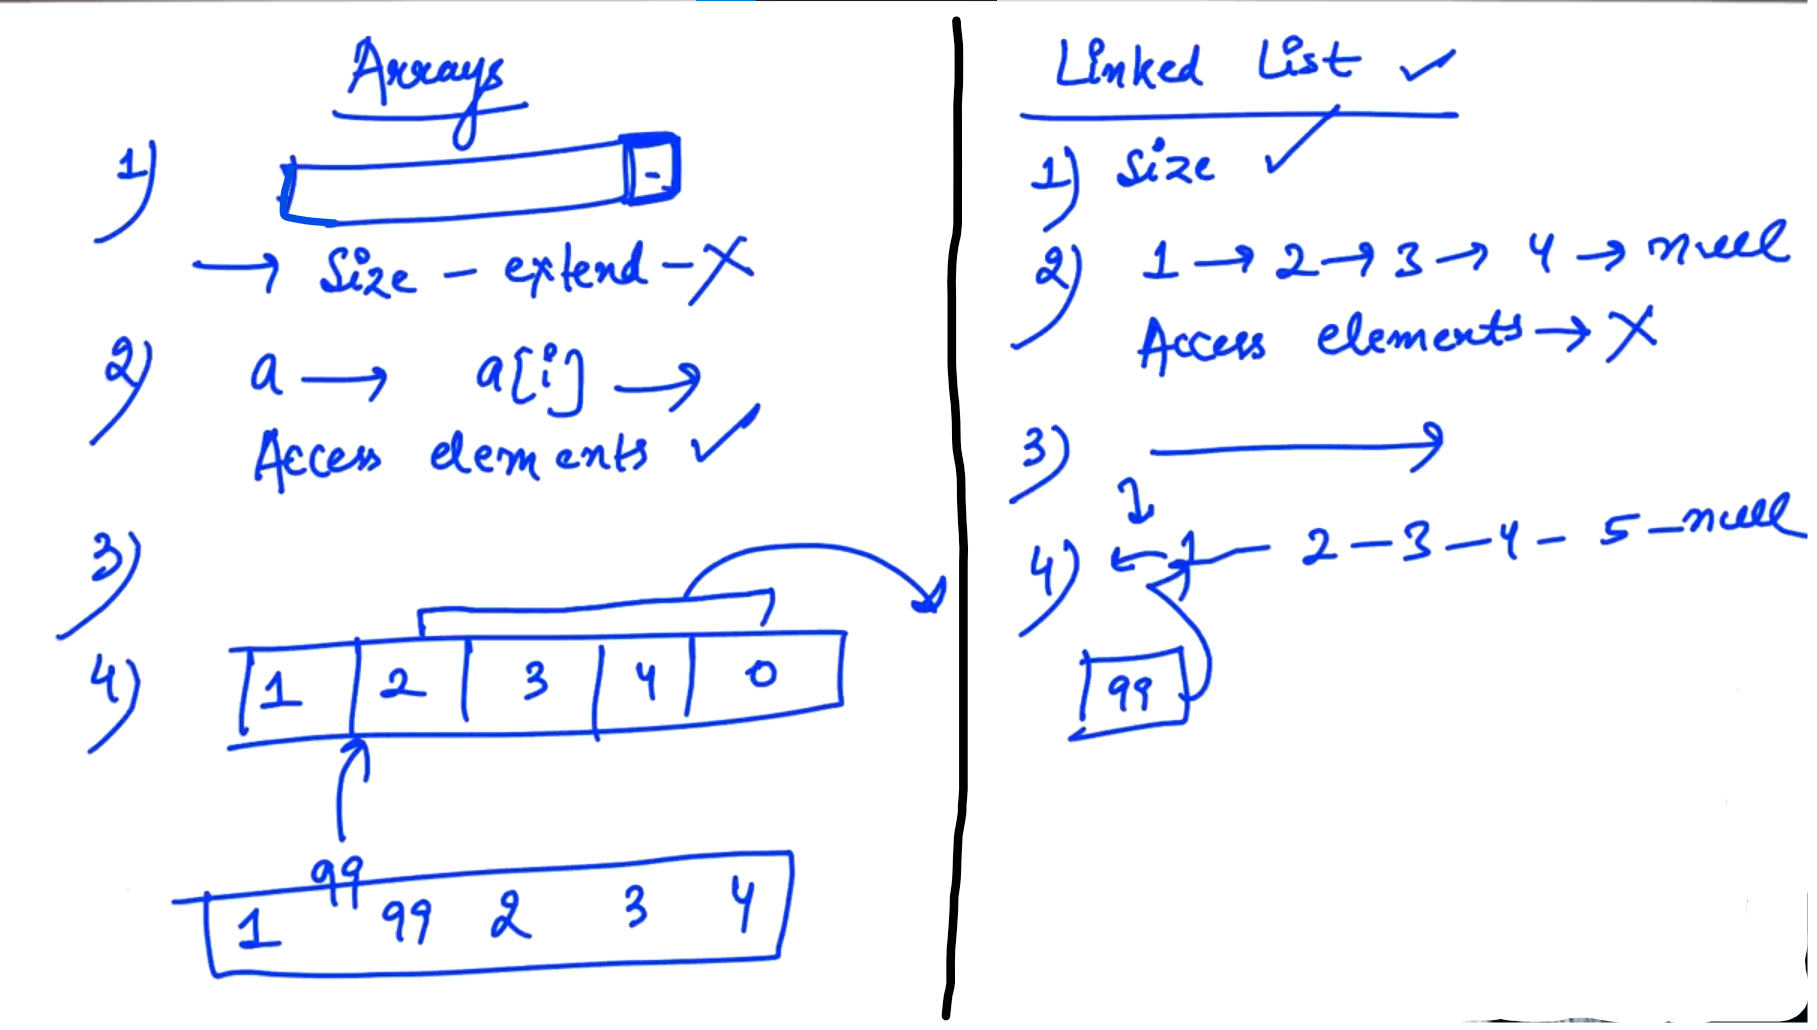 Arrays
1)
→ Size - extend - X
2) a → a[i] →
Access elements ✓
3)
4) 1 2 3 4 0
99
1 99 2 3 4
Linked List ✓
1) Size ✓
2) 1 → 2 → 3 → 4 → null
Access elements → X
3) →
4) ← 1 — 2 — 3 — 4 — 5 — null
99